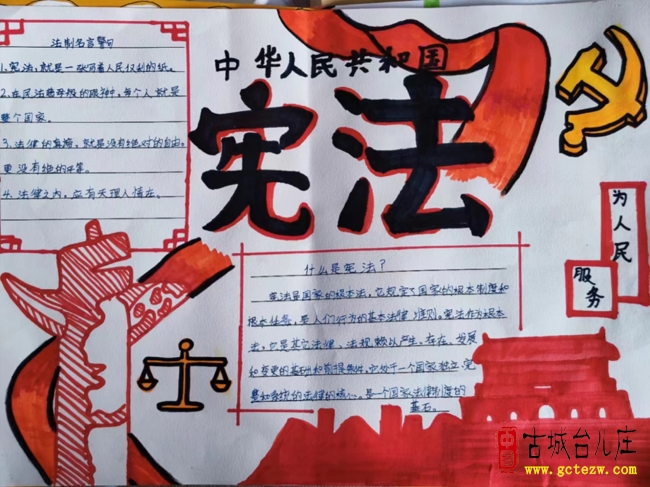 法制名言警句
1.宪法,就是一张写着人民权利的纸。
2.在民法慈母般的眼神,每个人就是
整个国家。
3.法律的真谛,就是没有绝对的自由,
更没有绝的平等。
4.法律之内,应有天理人情在。
中华人民共和国
宪法
为人民
服务
什么是宪法?
宪法是国家的根本法,它规定了国家的根本制度和
根本任务,是人们行为的基本法律准则。宪法作为根本
法,它是其它法律、法规赖以产生、存在、发展
和变更的基础和前提条件,它处于一个国家独立、完
整和系统的法律的核心,是一个国家法律制度的
基石。
古城台儿庄
www.gctezw.com